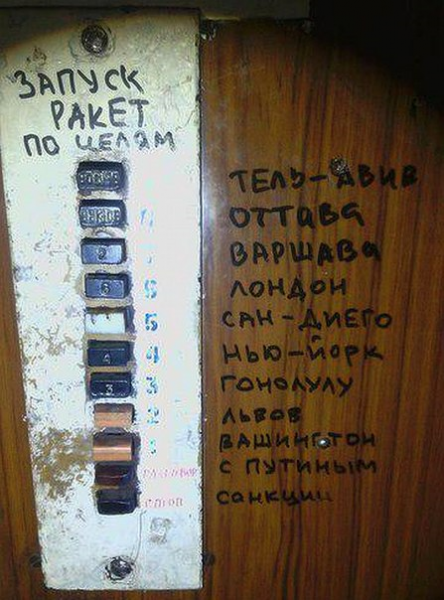 ЗАПУСК
РАКЕТ
ПО ЦЕЛЯМ
ТЕЛЬ-АВИВ
ОТТАВА
ВАРШАВА
6 6 ЛОНДОН
5 САН-ДИЕГО
4 4 НЬЮ-ЙОРК
3 3 ГОНОЛУЛУ
2 ЛЬВОВ
1 ВАШИНГТОН
РАЗГОВОР С ПУТИНЫМ
СТОП САНКЦИИ